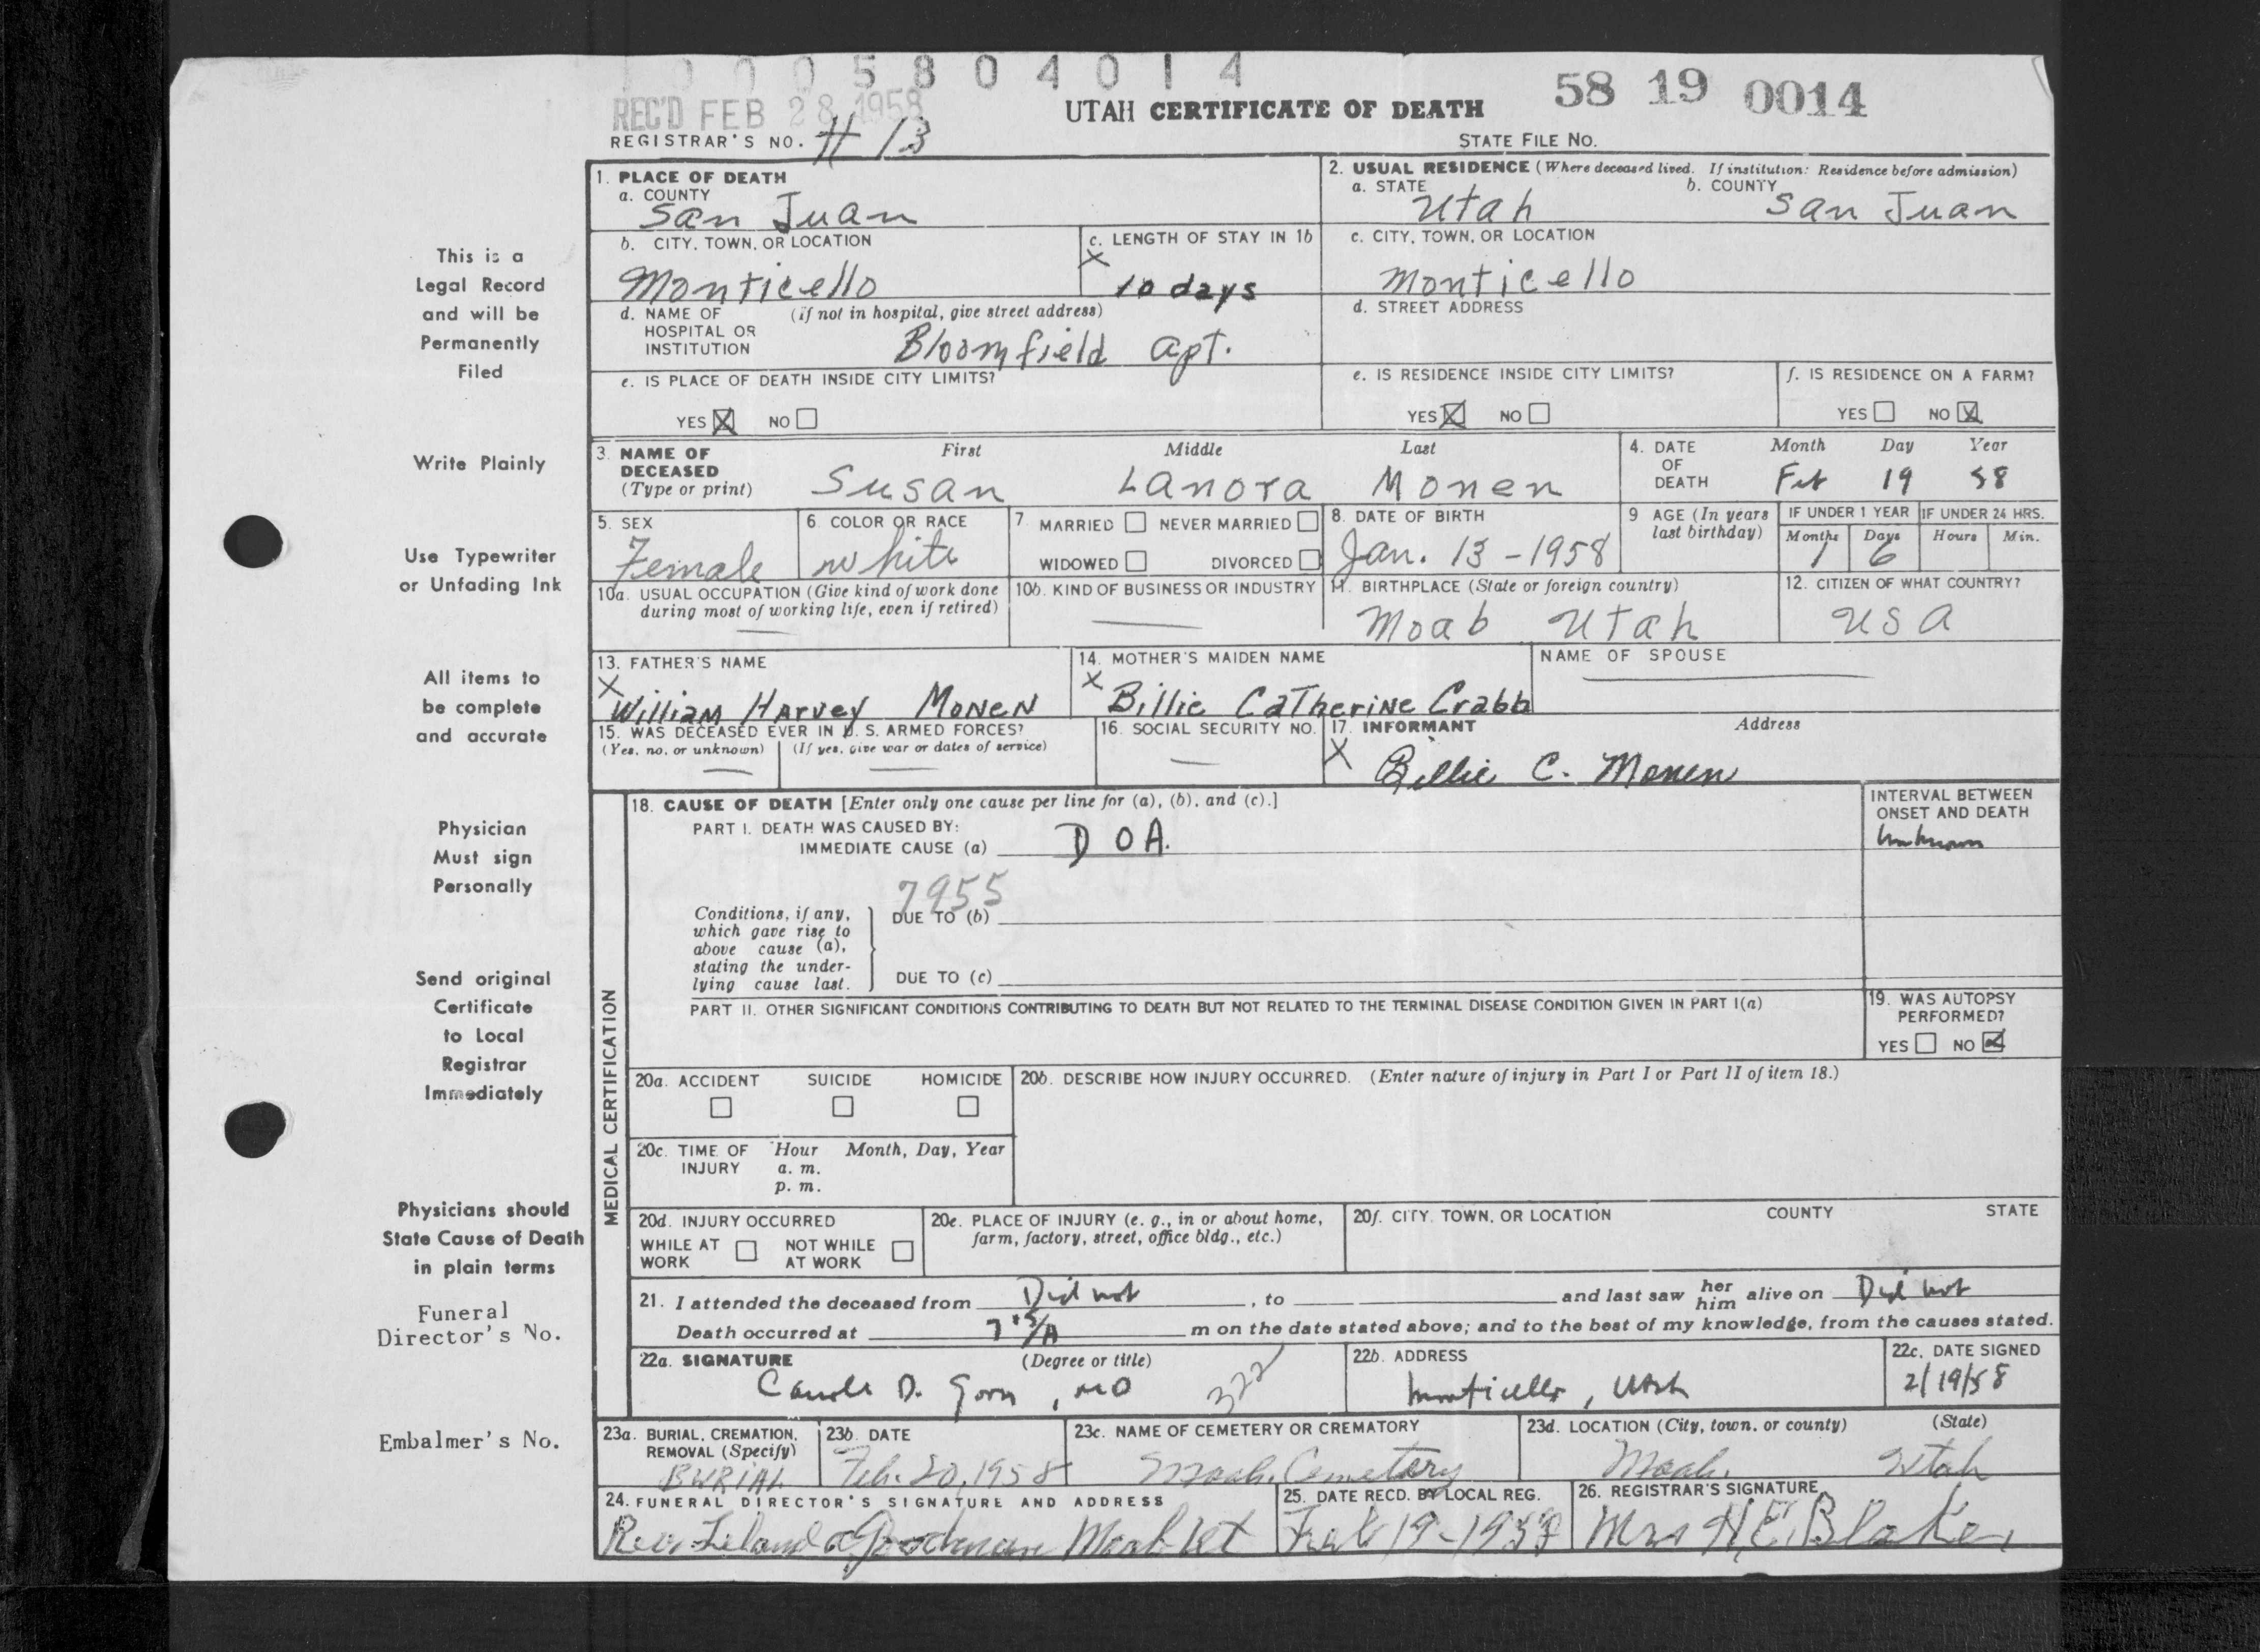 0 0 0 5 8 0 4 0 1 4
REC'D FEB 28 1958
UTAH CERTIFICATE OF DEATH
58 19 0014
REGISTRAR'S NO. # 13
STATE FILE NO.
This is a
Legal Record
and will be
Permanently
Filed
Write Plainly
Use Typewriter
or Unfading Ink
All items to
be complete
and accurate
Physician
Must sign
Personally
Send original
Certificate
to Local
Registrar
Immediately
Physicians should
State Cause of Death
in plain terms
Funeral
Director's No.
Embalmer's No.
1. PLACE OF DEATH
a. COUNTY
San Juan
2. USUAL RESIDENCE (Where deceased lived. If institution: Residence before admission)
a. STATE b. COUNTY
Utah San Juan
b. CITY, TOWN, OR LOCATION
Monticello
c. LENGTH OF STAY IN 1b
X 10 days
c. CITY, TOWN, OR LOCATION
Monticello
d. NAME OF (if not in hospital, give street address)
HOSPITAL OR
INSTITUTION
Bloomfield Apt.
d. STREET ADDRESS
e. IS PLACE OF DEATH INSIDE CITY LIMITS?
YES X NO
e. IS RESIDENCE INSIDE CITY LIMITS?
YES X NO
f. IS RESIDENCE ON A FARM?
YES NO X
3. NAME OF
DECEASED
(Type or print)
First Middle Last
Susan Lanora Monen
4. DATE
OF
DEATH
Month Day Year
Feb 19 58
5. SEX
Female
6. COLOR OR RACE
White
7. MARRIED NEVER MARRIED
WIDOWED DIVORCED
8. DATE OF BIRTH
Jan. 13 - 1958
9 AGE (In years
last birthday)
IF UNDER 1 YEAR IF UNDER 24 HRS.
Months Days Hours Min.
1 6
10a. USUAL OCCUPATION (Give kind of work done
during most of working life, even if retired)
10b. KIND OF BUSINESS OR INDUSTRY
11. BIRTHPLACE (State or foreign country)
Moab Utah
12. CITIZEN OF WHAT COUNTRY?
USA
13. FATHER'S NAME
X William Harvey Monen
14. MOTHER'S MAIDEN NAME
X Billie Catherine Crabb
NAME OF SPOUSE
15. WAS DECEASED EVER IN U. S. ARMED FORCES?
(Yes, no, or unknown) (If yes, give war or dates of service)
16. SOCIAL SECURITY NO.
17. INFORMANT Address
X Billie C. Monen
MEDICAL CERTIFICATION
18. CAUSE OF DEATH [Enter only one cause per line for (a), (b), and (c).]
PART I. DEATH WAS CAUSED BY:
IMMEDIATE CAUSE (a) D O A.
INTERVAL BETWEEN
ONSET AND DEATH
Unknown
7955
Conditions, if any,
which gave rise to
above cause (a),
stating the under-
lying cause last.
DUE TO (b)
DUE TO (c)
PART II. OTHER SIGNIFICANT CONDITIONS CONTRIBUTING TO DEATH BUT NOT RELATED TO THE TERMINAL DISEASE CONDITION GIVEN IN PART I(a)
19. WAS AUTOPSY
PERFORMED?
YES NO X
20a. ACCIDENT SUICIDE HOMICIDE
20b. DESCRIBE HOW INJURY OCCURRED. (Enter nature of injury in Part I or Part II of item 18.)
20c. TIME OF Hour Month, Day, Year
INJURY a. m.
p. m.
20d. INJURY OCCURRED
WHILE AT NOT WHILE
WORK AT WORK
20e. PLACE OF INJURY (e. g., in or about home,
farm, factory, street, office bldg., etc.)
20f. CITY, TOWN, OR LOCATION COUNTY STATE
21. I attended the deceased from Did not , to and last saw her him alive on Did not
Death occurred at 7 15/A m on the date stated above; and to the best of my knowledge, from the causes stated.
22a. SIGNATURE (Degree or title)
D. Goon, MD
322
22b. ADDRESS
Monticello, Utah
22c. DATE SIGNED
2/19/58
23a. BURIAL, CREMATION,
REMOVAL (Specify)
BURIAL
23b. DATE
Feb. 20, 1958
23c. NAME OF CEMETERY OR CREMATORY
Moab Cemetery
23d. LOCATION (City, town, or county) (State)
Moab. Utah
24. FUNERAL DIRECTOR'S SIGNATURE AND ADDRESS
Rev. Leland Goodman Moab Ut
25. DATE RECD. BY LOCAL REG.
Feb 19-1958
26. REGISTRAR'S SIGNATURE
Mrs H.E. Blake